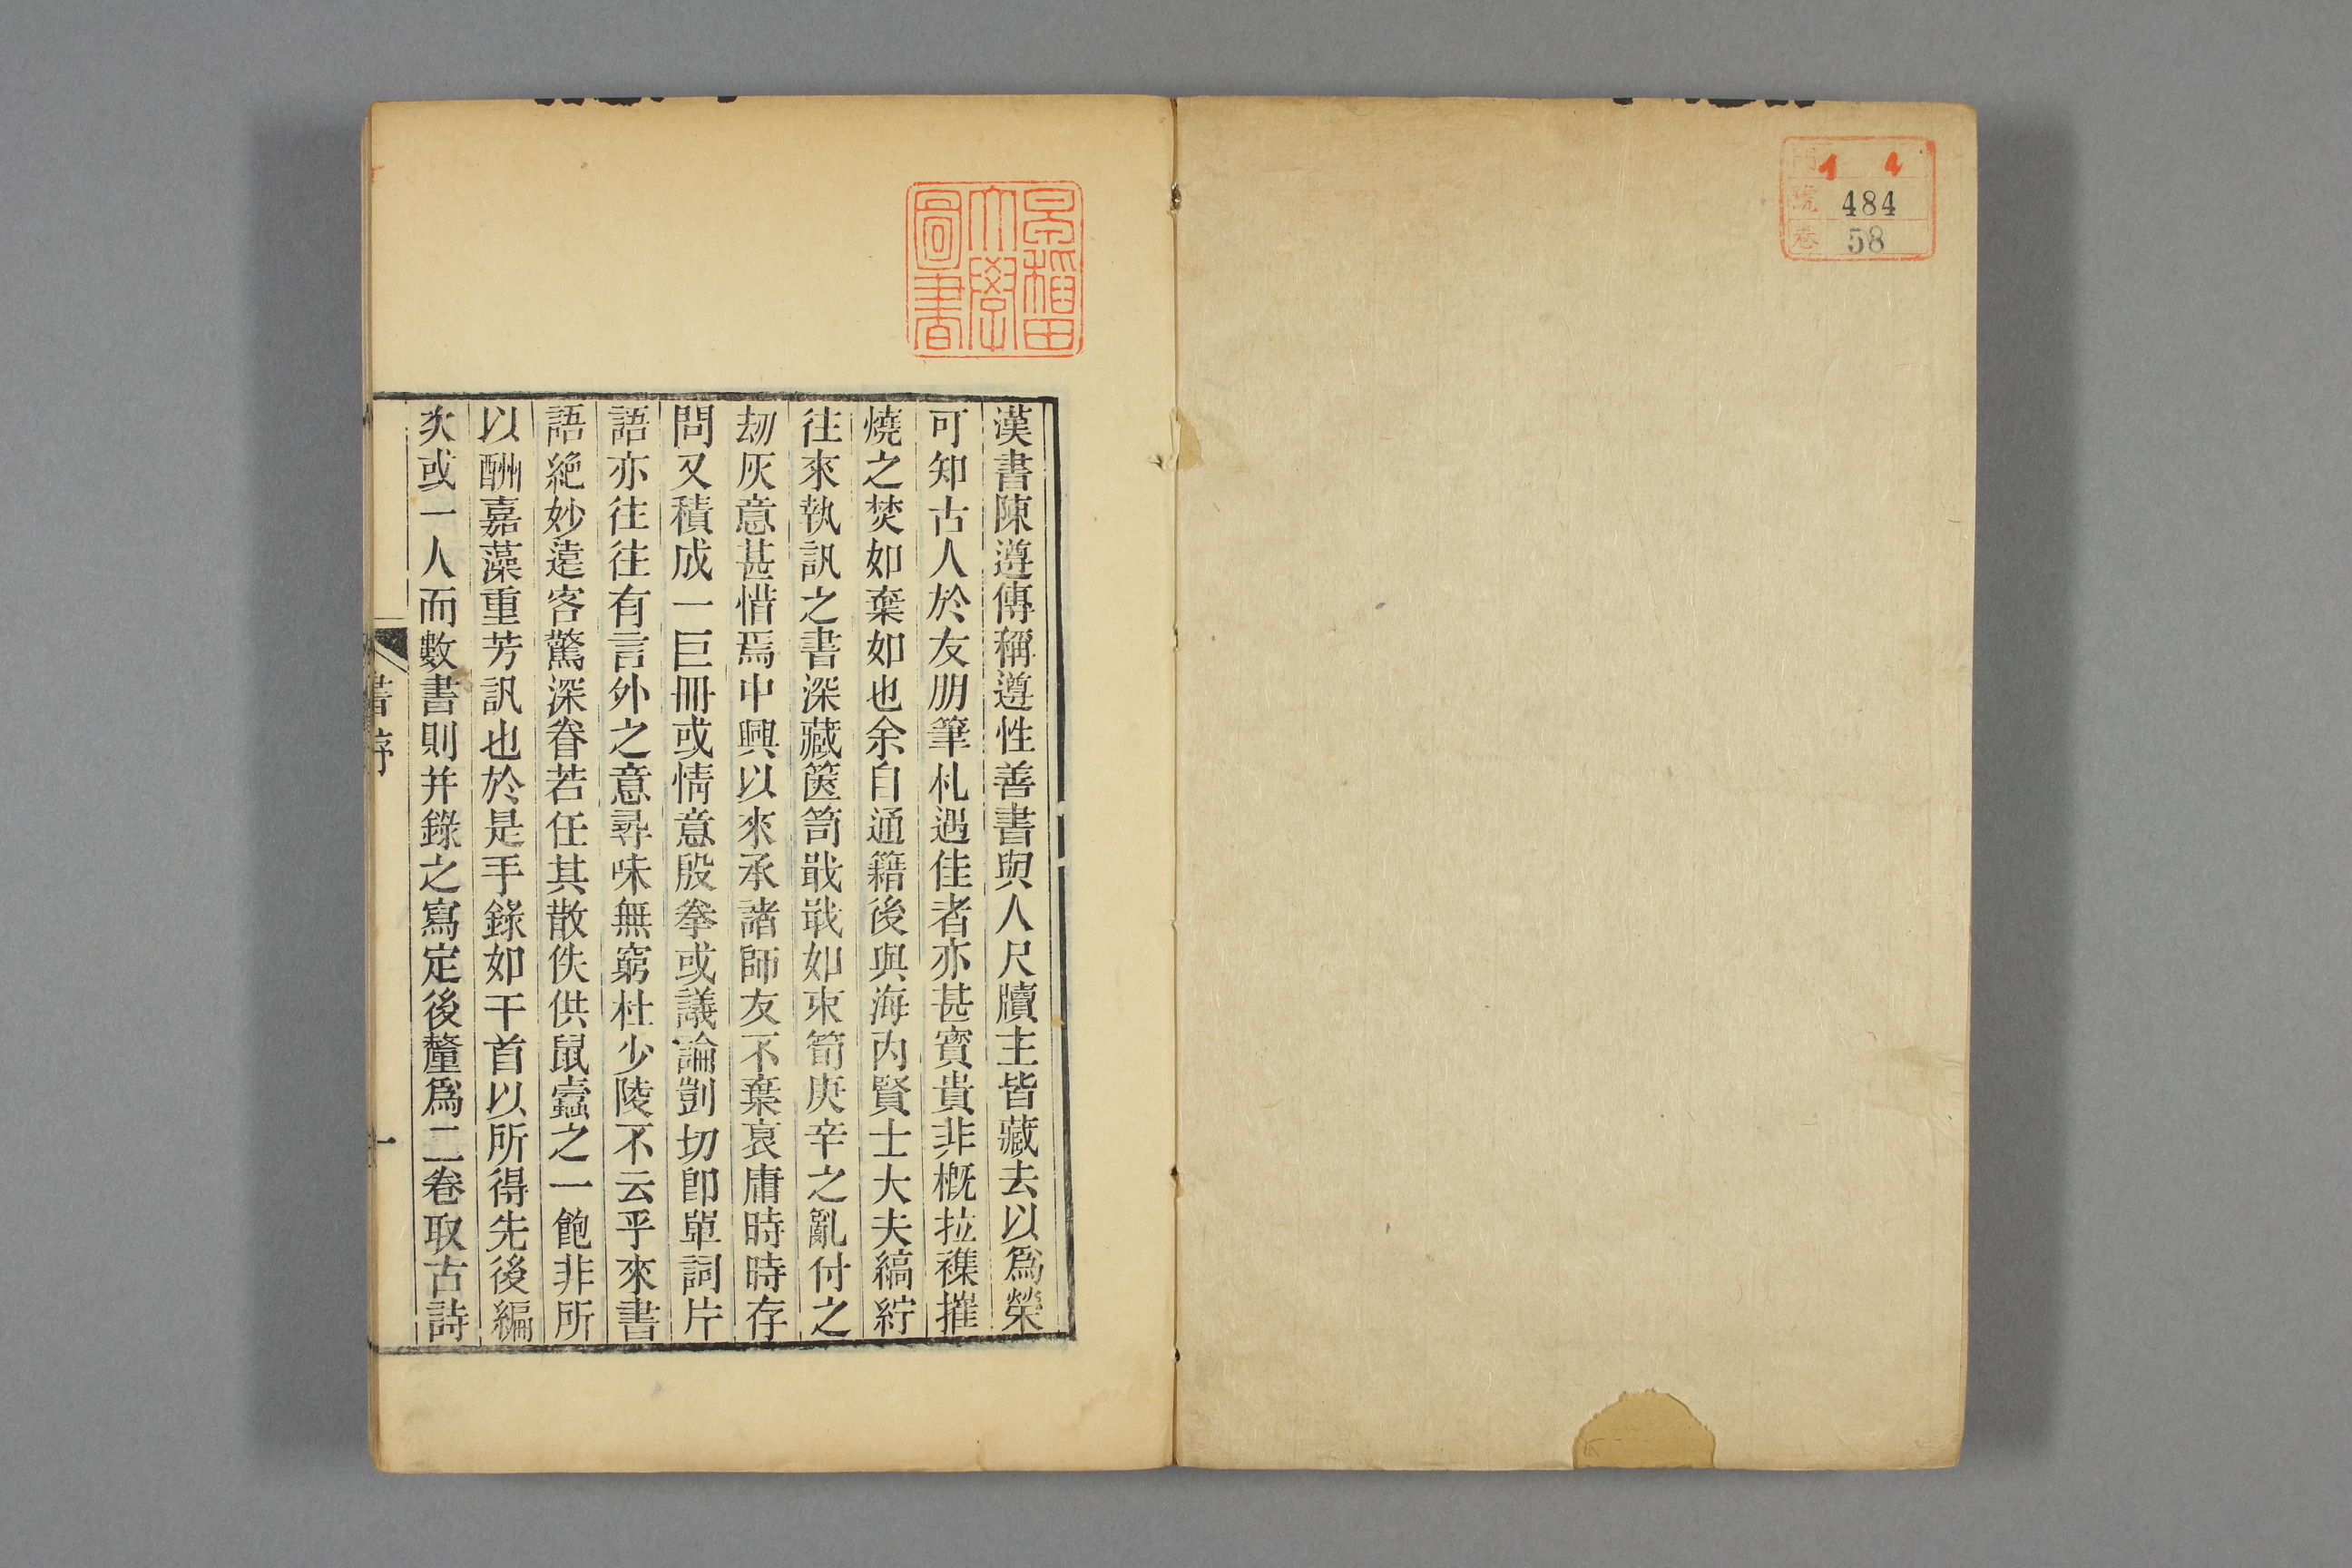 門 1 4
號 484
卷 58
早稲田
大學
圖書
漢書陳遵傳稱遵性善書與人尺牘主皆藏去以爲榮
可知古人於友朋筆札遇佳者亦甚寳貴非概拉襍摧
燒之焚如棄如也余自通籍後與海内賢士大夫縞紵
往來執訊之書深藏箧笥戢戢如束筍庚辛之亂付之
刼灰意甚惜焉中興以來承諸師友不棄衰庸時時存
問又積成一巨冊或情意殷拳或議論剴切卽單詞片
語亦往往有言外之意尋味無窮杜少陵不云乎來書
語絶妙遠客驚深眷若任其散佚供鼠蠧之一飽非所
以酬嘉藻重芳訊也於是手錄如干首以所得先後編
次或一人而數書則并錄之寫定後釐爲二卷取古詩
書序
一